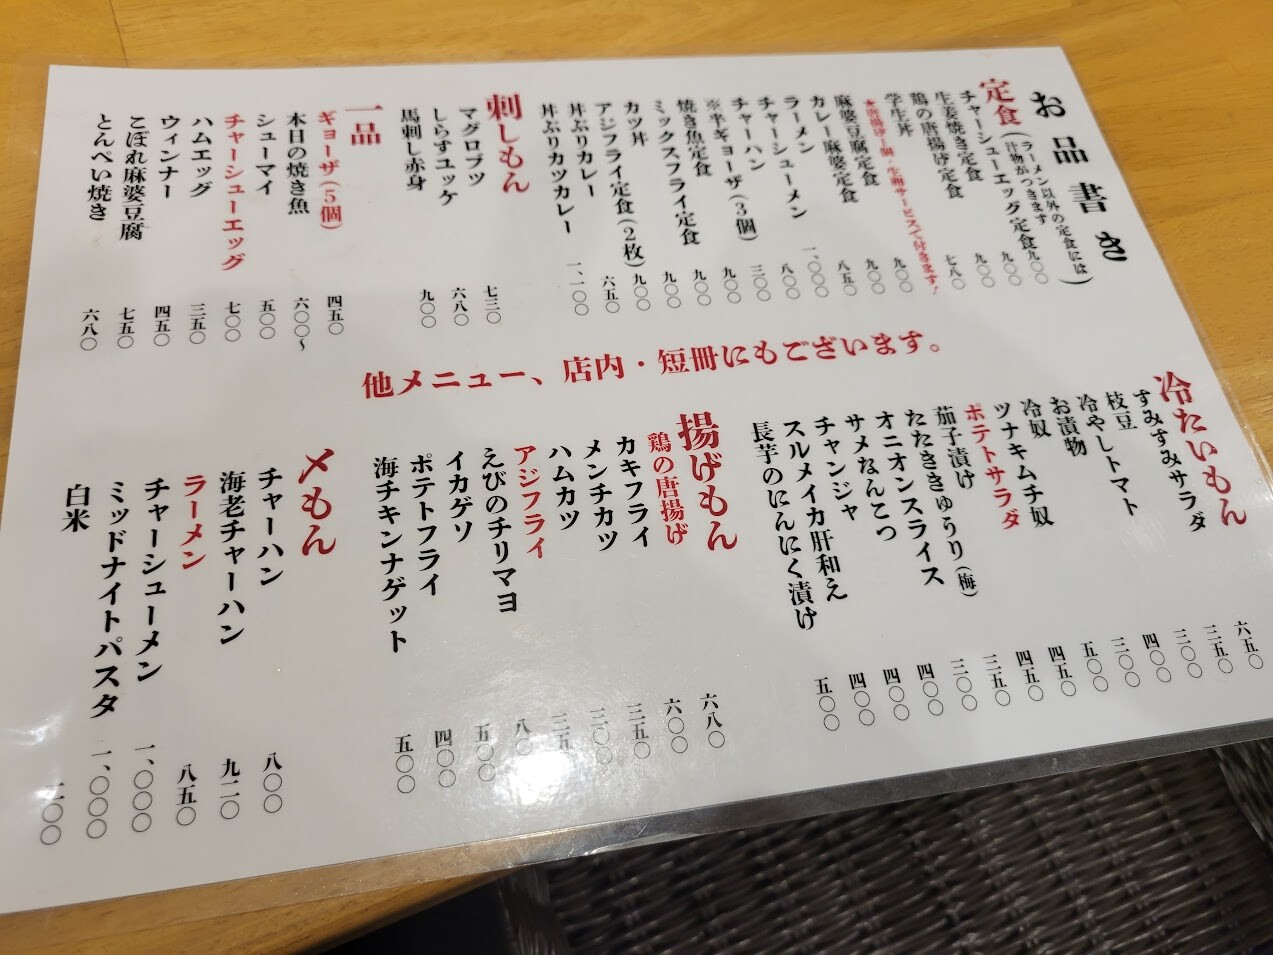 お品書き
定食(ラーメン以外の定食には
汁物がつきます)
チャーシューエッグ定食 九〇〇
生姜焼き定食 九〇〇
鶏の唐揚げ定食 九〇〇
学生丼 七八〇
★唐揚げ一個・生卵サービスで付きます!
麻婆豆腐定食 九〇〇
カレー麻婆定食 九〇〇
ラーメン 八五〇
チャーシューメン 一、〇〇〇
チャーハン 八〇〇
※半ギョーザ(3個) 三〇〇
焼き魚定食 九〇〇
ミックスフライ定食 九〇〇
カツ丼 九〇〇
アジフライ定食(2枚) 九〇〇
丼ぶりカレー 六五〇
丼ぶりカツカレー 一、一〇〇
刺しもん
マグロブツ 七三〇
しらすユッケ 六八〇
馬刺し赤身 九〇〇
一品
ギョーザ(5個) 四五〇
本日の焼き魚 六〇〇〜
シューマイ 五〇〇
チャーシューエッグ 七〇〇
ハムエッグ 三五〇
ウィンナー 四五〇
こぼれ麻婆豆腐 七五〇
とんぺい焼き 六八〇
他メニュー、店内・短冊にもございます。
冷たいもん
すみすみサラダ 六五〇
枝豆 三五〇
冷やしトマト 三〇〇
お漬物 四〇〇
冷奴 三〇〇
ツナキムチ奴 五〇〇
ポテトサラダ 四五〇
茄子漬け 四五〇
たたききゅうり(梅) 三五〇
オニオンスライス 三〇〇
サメなんこつ 四〇〇
チャンジャ 四〇〇
スルメイカ肝和え 四〇〇
長芋のにんにく漬け 五〇〇
揚げもん
鶏の唐揚げ 六八〇
カキフライ 六〇〇
メンチカツ 三五〇
ハムカツ 三〇〇
アジフライ
えびのチリマヨ
イカゲソ 五〇〇
ポテトフライ 四〇〇
海チキンナゲット 五〇〇
〆もん
チャーハン 八〇〇
海老チャーハン 九二〇
ラーメン 八五〇
チャーシューメン 一、〇〇〇
ミッドナイトパスタ 一、〇〇〇
白米 二〇〇